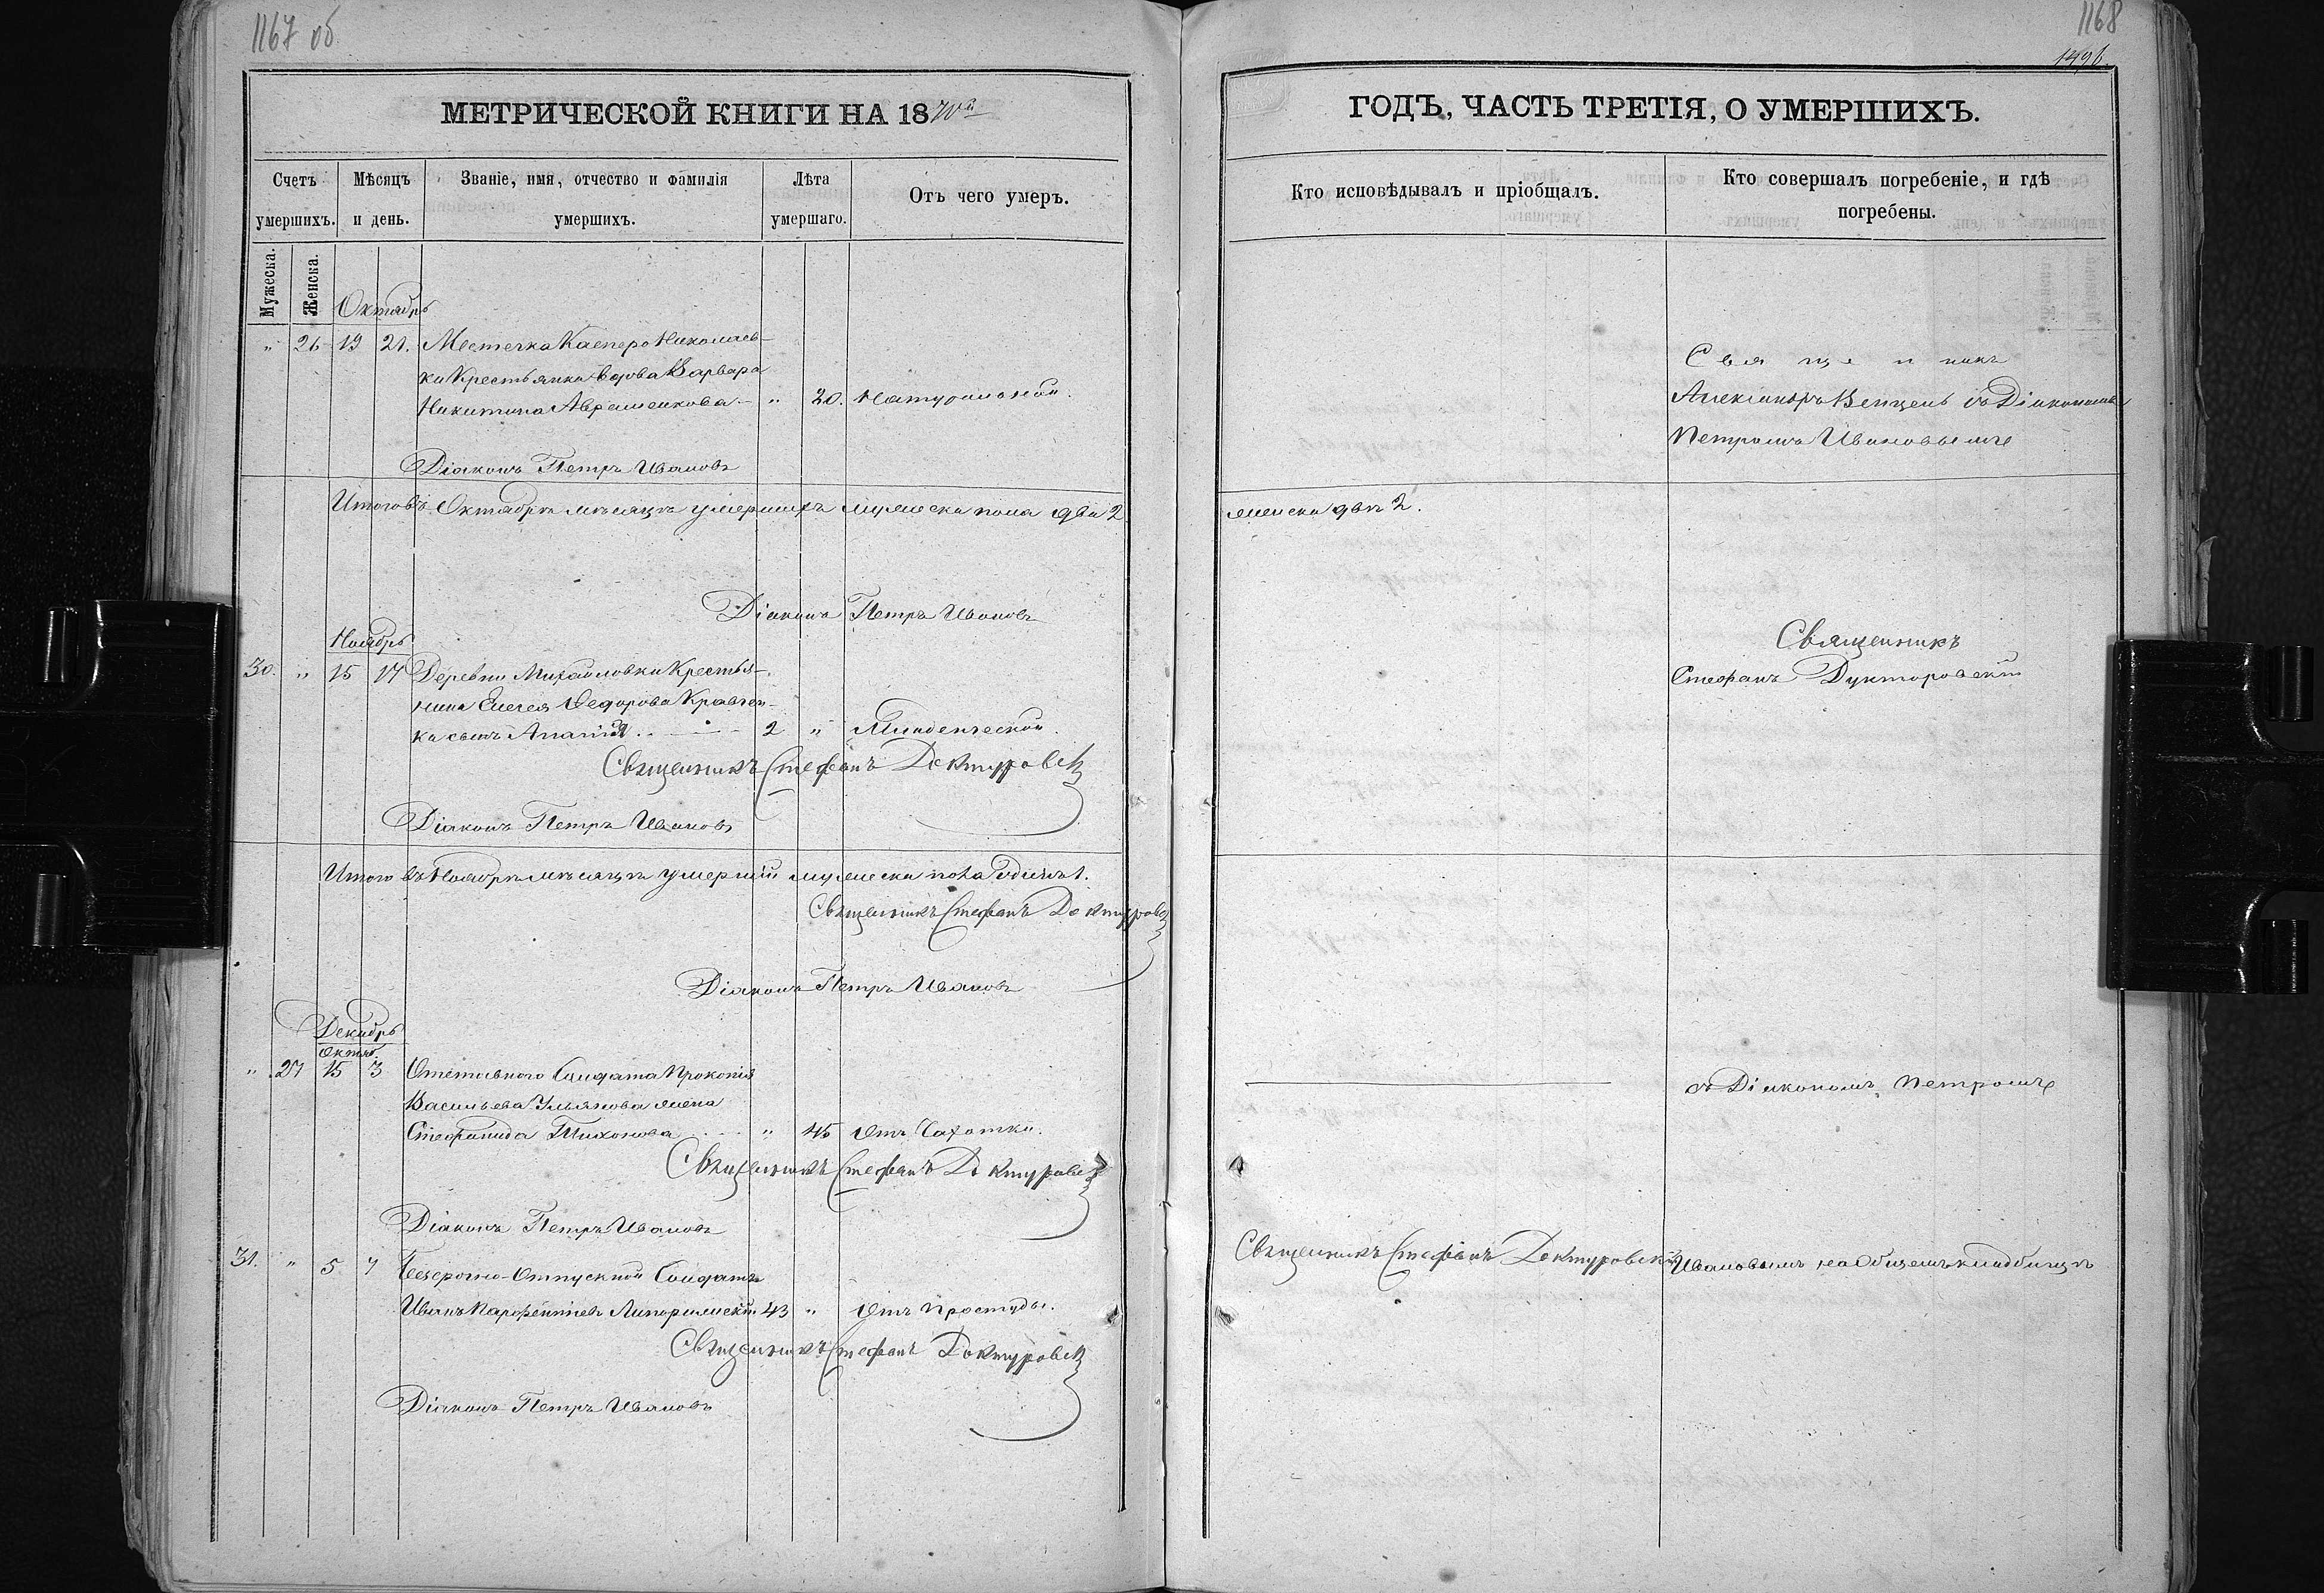 1167 об
МЕТРИЧЕСКОЙ КНИГИ НА 1870й
Счетъ умершихъ.
Мѣсяцъ и день.
Званіе, имя, отчество и фамилія умершихъ.
Лѣта умершаго.
Отъ чего умеръ.
Мужеска.
Женска.
Октябрь
" 26 19 21. Местечка Касперо Николаев-
ки Крестьянка вдова Варвара
Никитина Авраменкова - " 20. Натуральной.
Діаконъ Петръ Ивановъ
Итого въ Октябрѣ мѣсяцѣ умершихъ мужеска пола два 2
Діаконъ Петръ Ивановъ
Ноябрь
30. " 15 17 Деревни Михайловки Крестья-
нина Елисея Ѳедорова Кравчен-
ка сынъ Ананій 2 " Младенческой.
Священникъ Стефанъ Доктуровск
Діаконъ Петръ Ивановъ
Итого въ Ноябрѣ мѣсяцѣ умершій мужеска пола одинъ 1.
Священникъ Стефанъ Доктуровск
Діаконъ Петръ Ивановъ
Декабрь
Октяб.
" 27 15 3 Отставного Солдата Прокопія
Васильева Ульянова жена
Стефанида Тихонова " 45 Отъ Чахотки.
Священникъ Стефанъ Доктуровск
Діаконъ Петръ Ивановъ
31. " 5 7 Безсрочно-Отпускной Солдатъ
Иванъ Парфентіевъ 43 " Отъ простуды.
Священникъ Стефанъ Доктуровск
Діаконъ Петръ Ивановъ
1168
1496.
ГОДЪ, ЧАСТЬ ТРЕТІЯ, О УМЕРШИХЪ.
Кто исповѣдывалъ и пріобщалъ.
Кто совершалъ погребеніе, и гдѣ погребены.
Священникъ
Александръ Венцель съ Діакономъ
Петромъ Ивановымъ
женска двѣ 2.
Священникъ
Стефанъ Дукторовскій
съ Діакономъ Петромъ
Священникъ Стефанъ Доктуровскій
Ивановымъ на Общемъ кладбищѣ